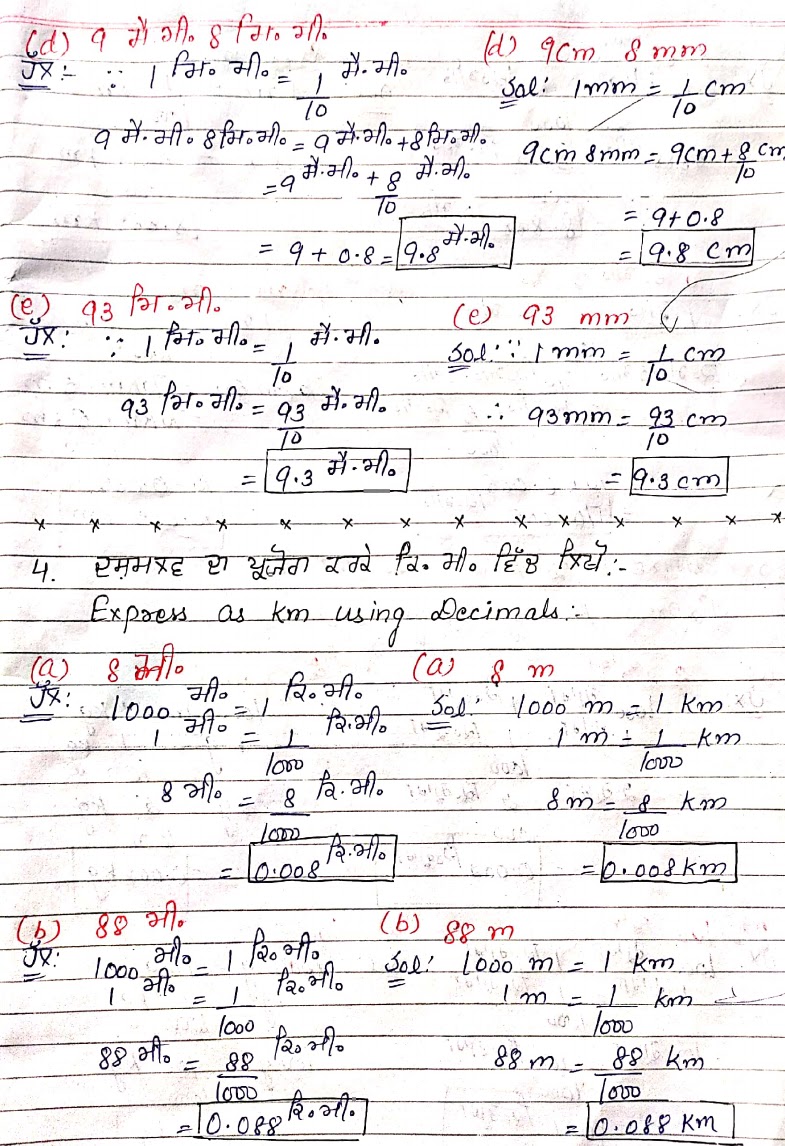 (d) 9 ਸੈ.ਮੀ. 8 ਮਿ. ਮੀ.
ਹੱਲ:- ∵ 1 ਮਿ. ਮੀ. = 1/10 ਸੈ.ਮੀ.
9 ਸੈ.ਮੀ. 8 ਮਿ.ਮੀ. = 9 ਸੈ.ਮੀ. + 8 ਮਿ.ਮੀ.
= 9 ਸੈ.ਮੀ. + 8/10 ਸੈ.ਮੀ.
= 9 + 0.8 = 9.8 ਸੈ.ਮੀ.
(d) 9cm 8 mm
Sol: 1mm = 1/10 cm
9cm 8mm = 9cm + 8/10 cm
= 9+0.8
= 9.8 cm
(e) 93 ਮਿ.ਮੀ.
ਹੱਲ: ∵ 1 ਮਿ. ਮੀ. = 1/10 ਸੈ.ਮੀ.
93 ਮਿ. ਮੀ. = 93/10 ਸੈ.ਮੀ.
= 9.3 ਸੈ.ਮੀ.
(e) 93 mm
Sol: ∵ 1 mm = 1/10 cm
∴ 93mm = 93/10 cm
= 9.3 cm
x x x x x x x x x x x x x x
4. ਦਸ਼ਮਲਵ ਦਾ ਪ੍ਰਯੋਗ ਕਰਕੇ ਕਿ. ਮੀ. ਵਿੱਚ ਲਿਖੋ:-
Express as km using Decimals:-
(a) 8 ਮੀ.
ਹੱਲ: 1000 ਮੀ. = 1 ਕਿ.ਮੀ.
1 ਮੀ. = 1/1000 ਕਿ.ਮੀ.
8 ਮੀ. = 8/1000 ਕਿ.ਮੀ.
= 0.008 ਕਿ.ਮੀ.
(a) 8 m
Sol: 1000 m = 1 km
1 m = 1/1000 km
8m = 8/1000 km
= 0.008 km
(b) 88 ਮੀ.
ਹੱਲ: 1000 ਮੀ. = 1 ਕਿ.ਮੀ.
1 ਮੀ. = 1/1000 ਕਿ.ਮੀ.
88 ਮੀ. = 88/1000 ਕਿ.ਮੀ.
= 0.088 ਕਿ.ਮੀ.
(b) 88 m
Sol: 1000 m = 1 km
1 m = 1/1000 km
88 m = 88/1000 km
= 0.088 km